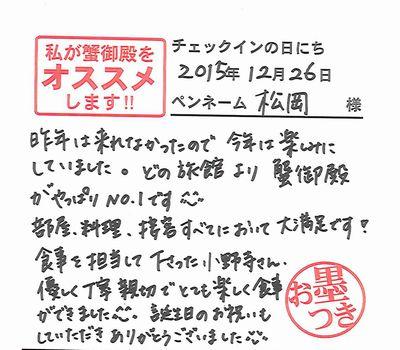 私が蟹御殿を
オススメ
します!!
チェックインの日にち
2015年12月26日
ペンネーム 松岡 様
昨年は来れなかったので 今年は楽しみに
していました。どの旅館より 蟹御殿
がやっぱりNO.1です
部屋、料理、接客すべてにおいて大満足です!
食事を担当して下さった小野寺さん、
優しく丁寧親切でとても楽しく食事
ができました。誕生日のお祝いも
していただきありがとうございました
お墨つき